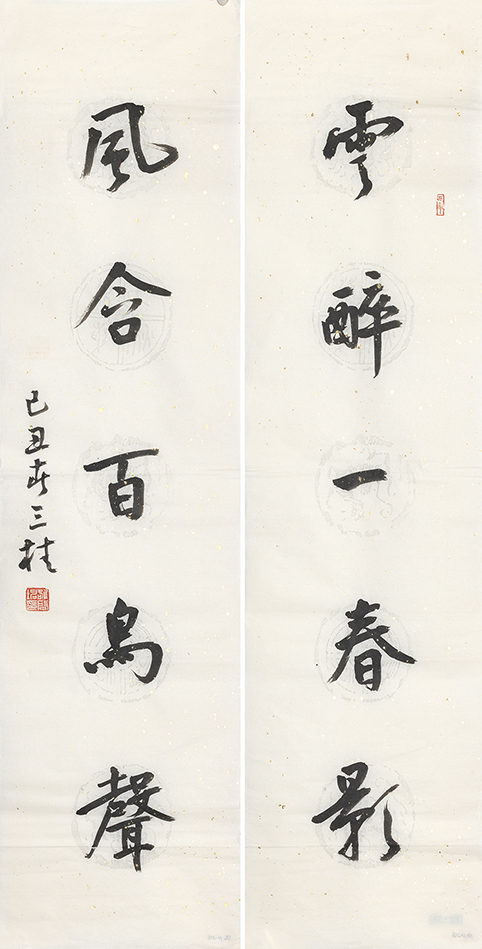 雲醉一春影
風含百鳥聲
己丑春三桂